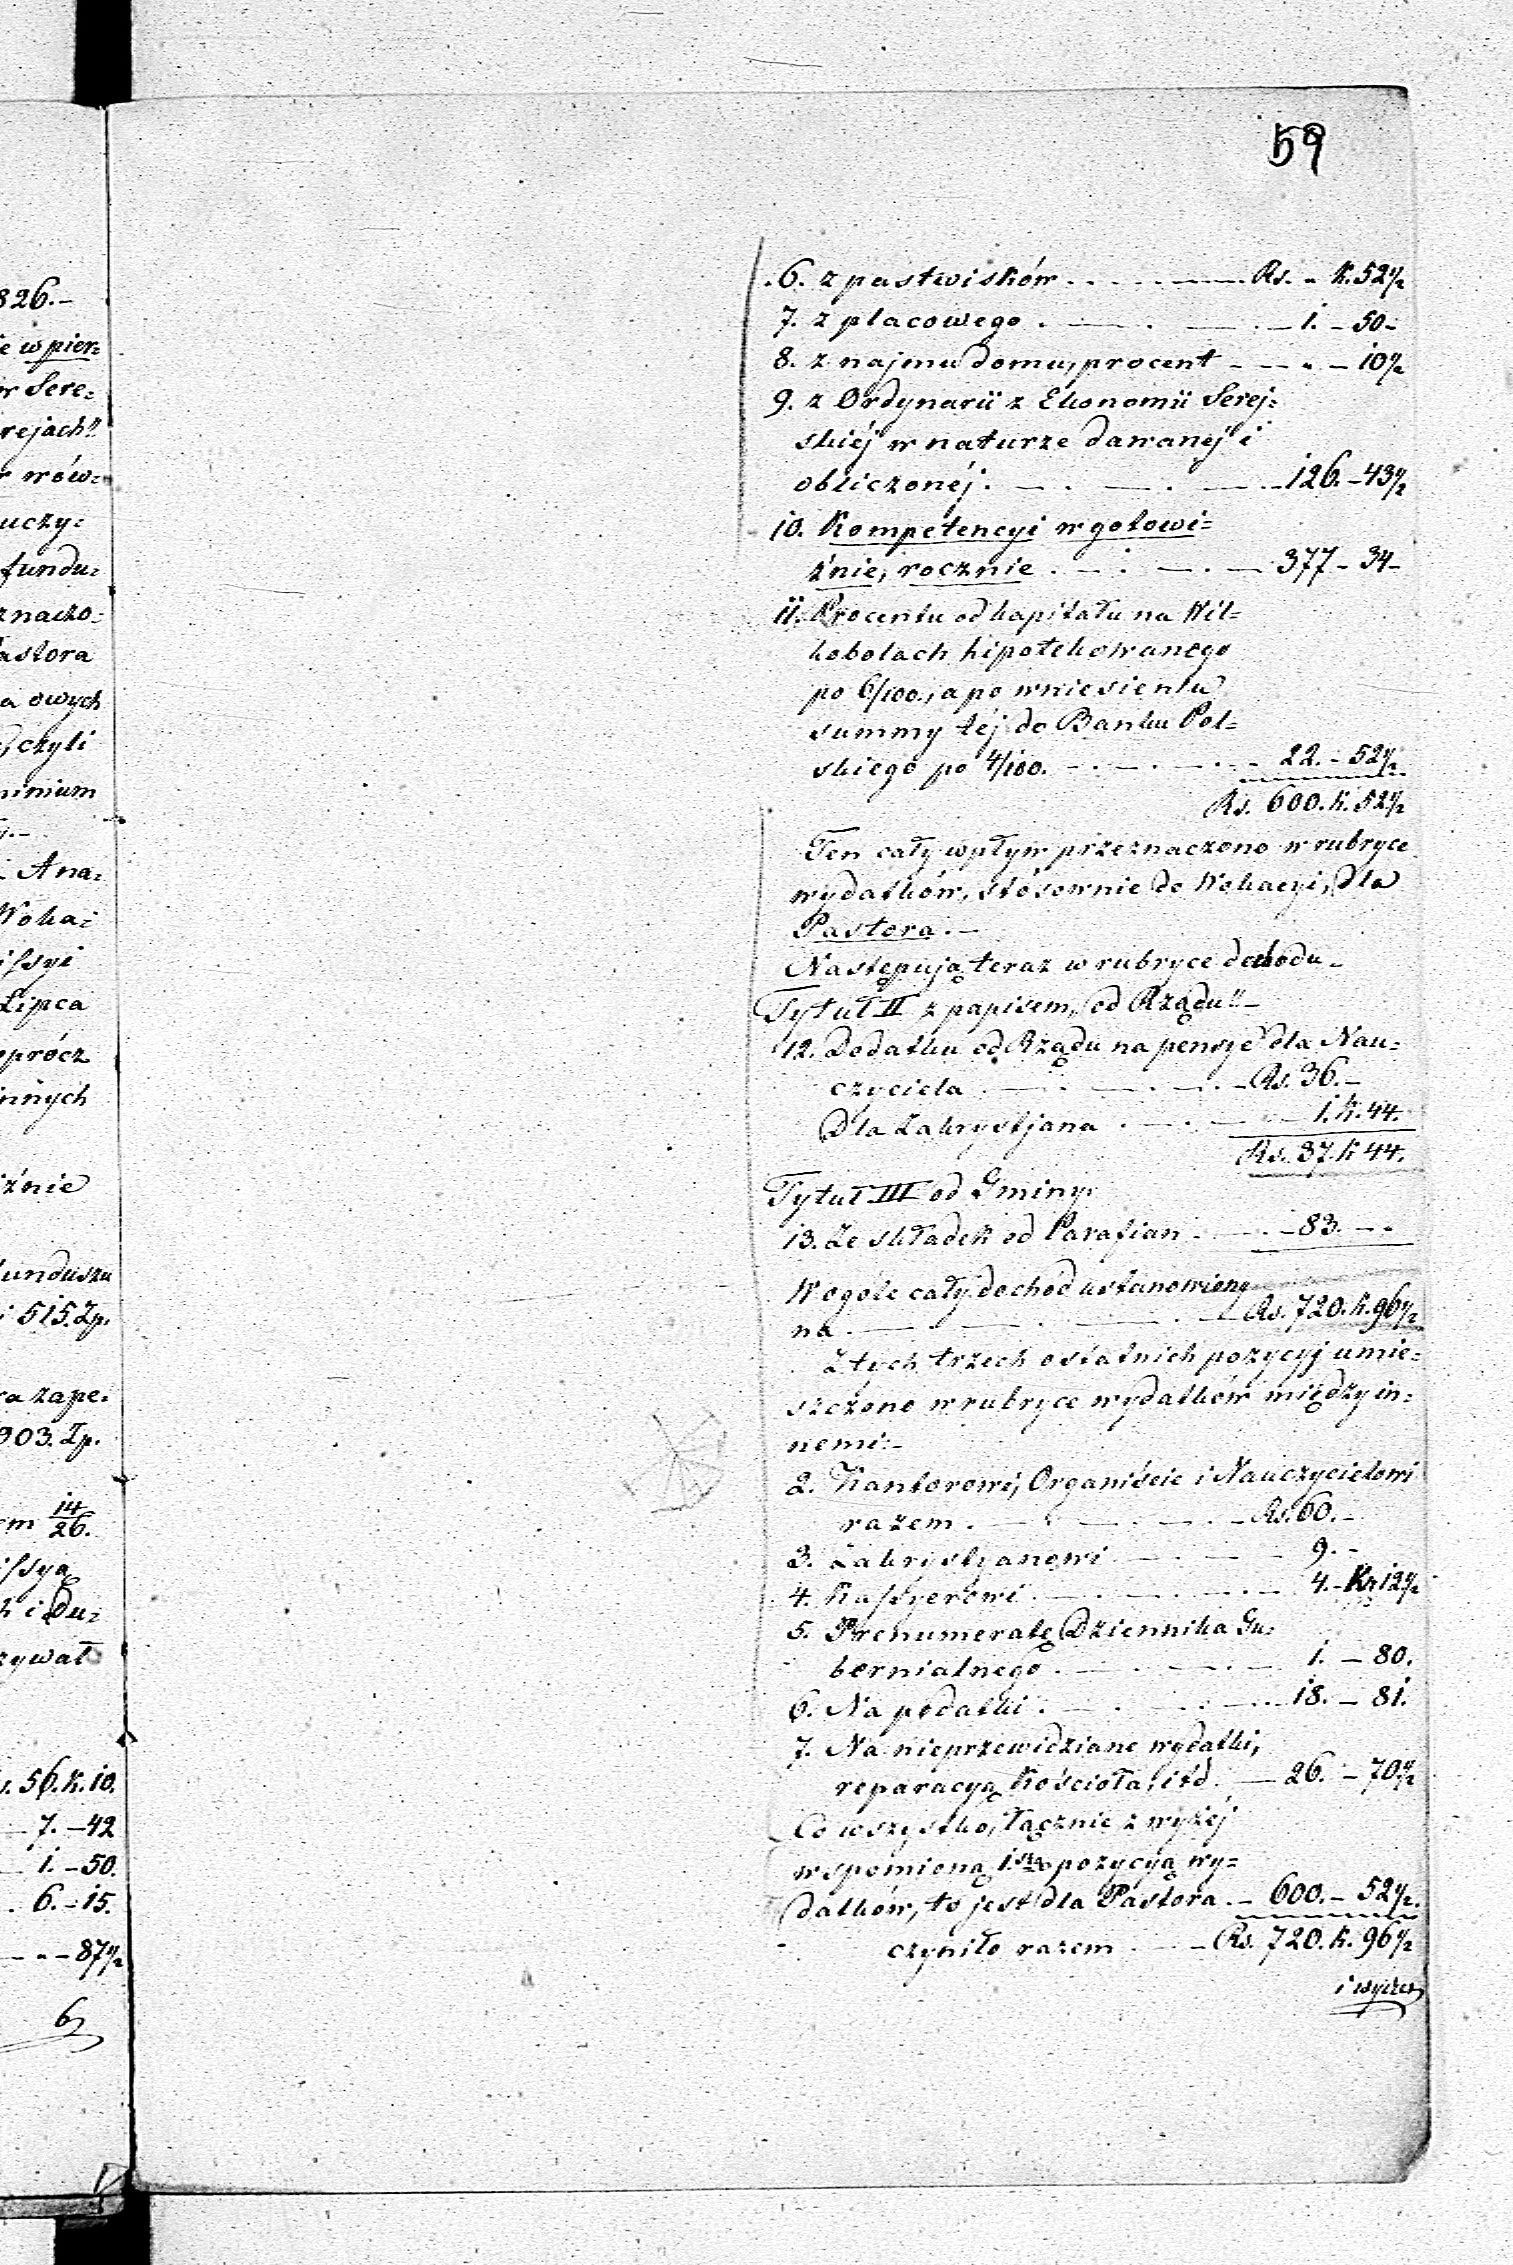 826.-
ie w pier=
w Sere=
rejach"
r rów=
uczy=
fundu=
znaczo=
astora
a owych
, czyli
nimum
Ana=
Woka=
issyi
Lipca
oprócz
innych
iźnie
unduszu
i 515. Zp.
ra zape=
903. Zp.
em 14/26.
issyą
h i Du=
zywał
s. 56. K. 10.
- 7. - 42
- 1. - 50.
. 6. - 15.
- - - 87½
6
59
6. z pastwisków . . . . Rs. „ K. 52½
7. z placowego . - . - . - 1. - 50 -
8. z najmu domu, procent - - „ - 10½
9. z Ordynarii z Ekonomii Serej=
skiéj w naturze dawanéj i
obliczonéj . - . - . - . - 126. - 43½
10. Kompetencyi w gotowi=
źnie, rocznie . - . - . - 377 - 34 -
11. Procentu od kapitału na Wil=
kobolach hipotekowanego
po 6/100., a po wniesieniu
summy téj do Banku Pol=
skiego po 4/100. - . - . - . - 22. - 52½
Rs. 600. K. 52½
Ten cały wpływ przeznaczono w rubryce
wydatków, stósownie do Wokacyi, dla
Pastora. -
Następują teraz w rubryce dochodu -
Tytuł II z papisem, „od Rządu" -
12. Dodatku od Rządu na pensye dla Nau=
czyciela . - . - . - . - Rs. 36. -
Dla Zakrystjana . - . - 1. K. 44.
Rs. 37. K 44.
Tytuł III od Gminy.
13. Ze składek od Parafian . - . - 83. - „
Wogole cały dochód ustanowiony
na . - . - . - . - Rs. 720. K. 96½
Z tych trzech ostatnich pozycyj umie=
szczono w rubryce wydatków między in=
nemi: -
2. Kantorowi, Organiście i Nauczycielowi
razem . - . - . - . - Rs. 60. -
3. Zakrystyanowi . - . - . - 9. -
4. Kassyerowi . - . - . - 4. - K. 12½
5. Prenumeratę Dziennika Gu=
bernialnego . - . - . - 1. - 80.
6. Na podatki . - . - . - 18. - 81.
7. Na nieprzewidziane wydatki,
reparacyą Kościoła, itd. - 26. - 70½
Co wszystko, łącznie z wyżéj
wspomioną 1.szą pozycyą wy=
datków, to jest dla Pastora . - 600. - 52½.
czyniło razem . - Rs. 720. K. 96½